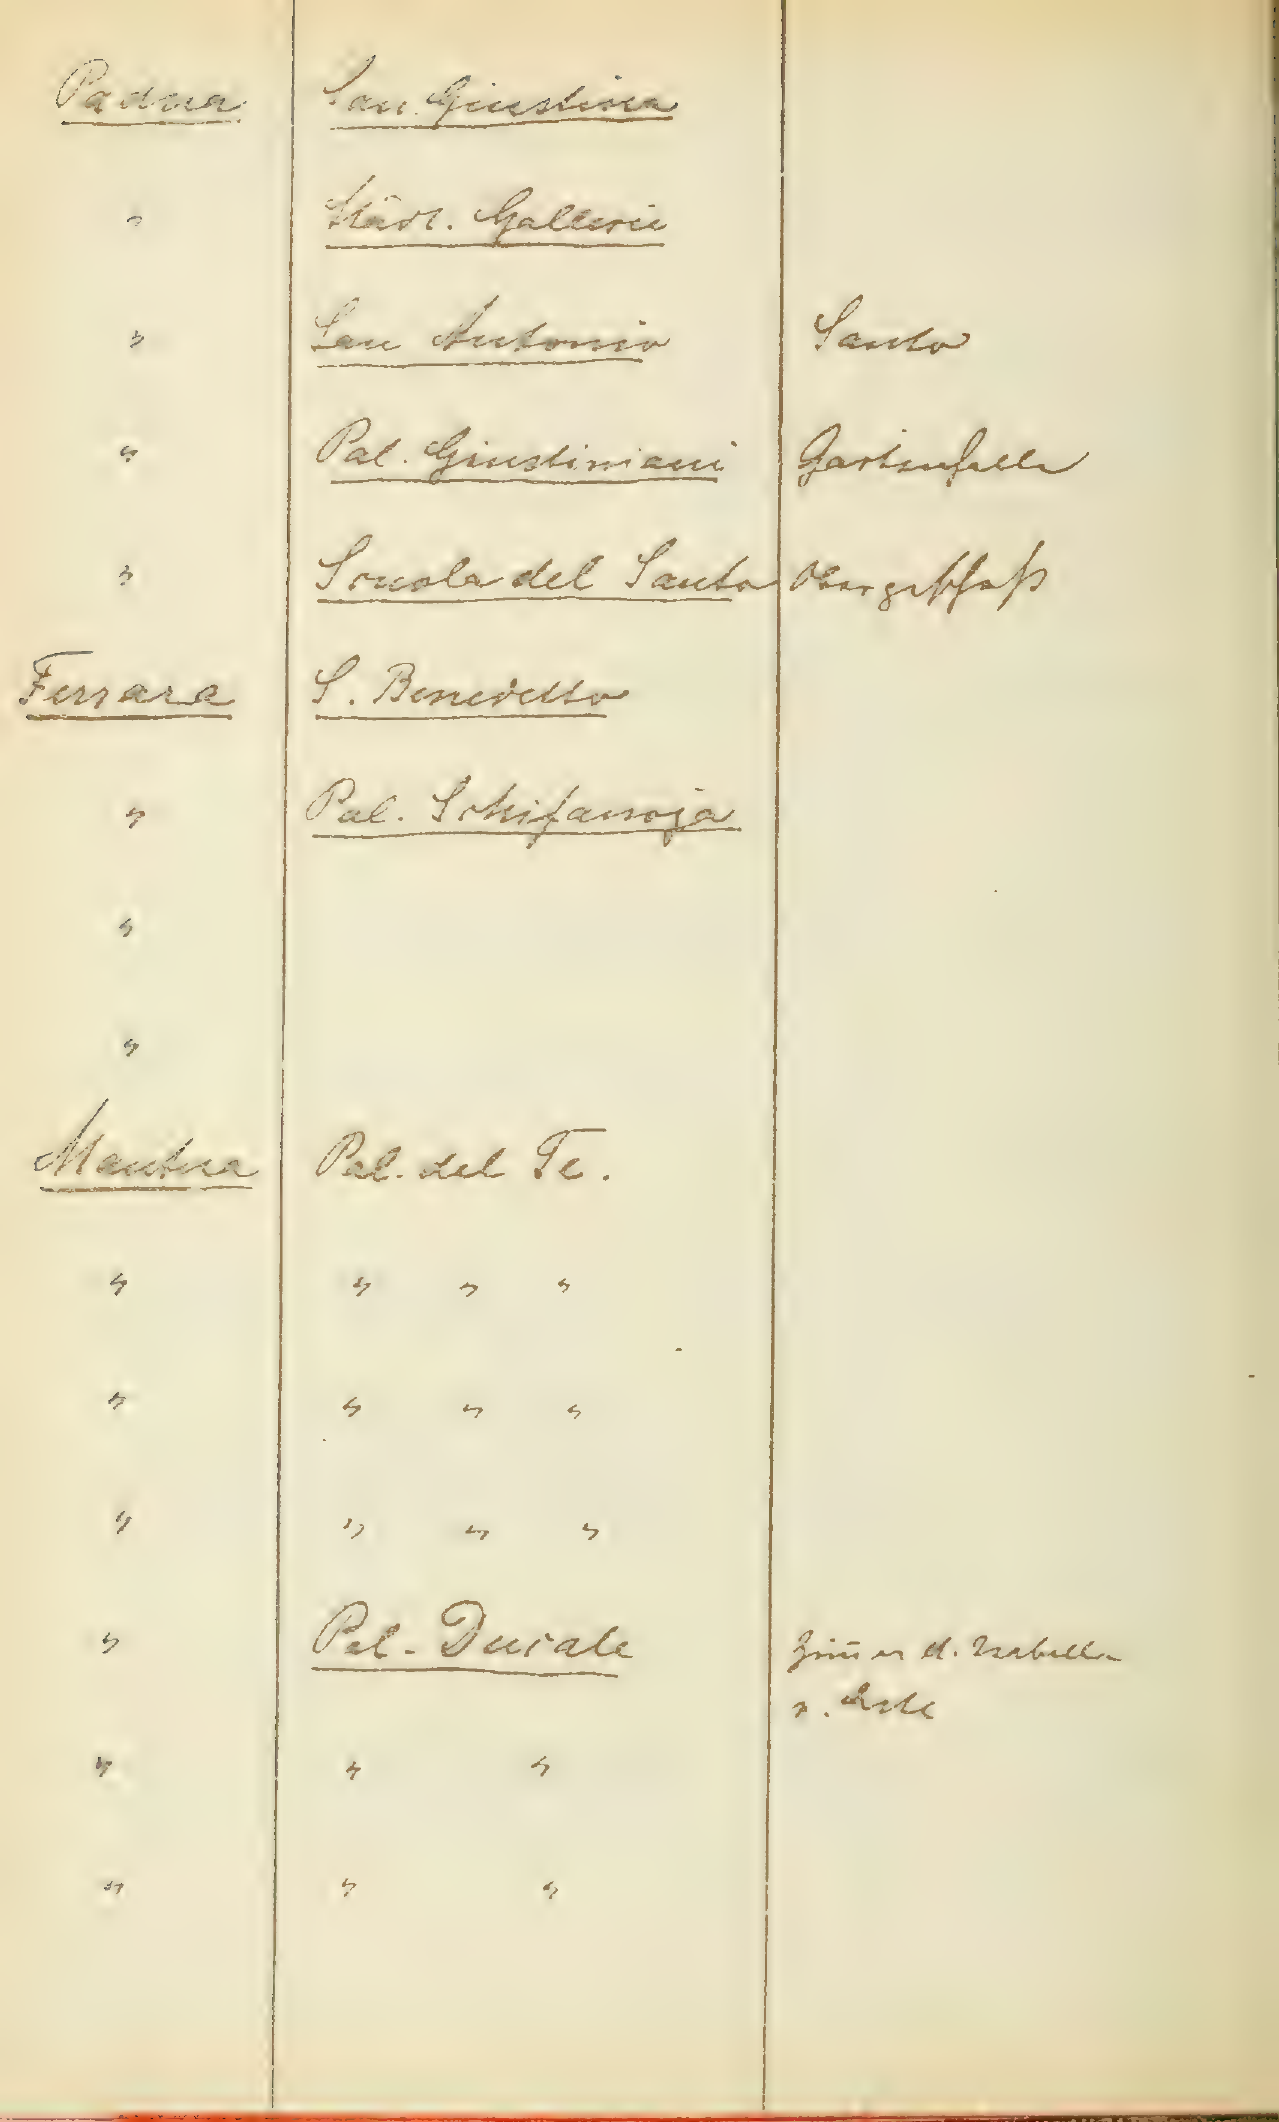 Padua San Giustina
" Städt. Gallerie
" San Antonio Santo
" Pal. Giustiniani Gartenhalle
" Scuola del Santo Obergeschoß
Ferrara S. Benedetto
" Pal. Schifanoja
"
"
Mantua Pal. del Te.
" " " "
" " " "
" " " "
" Pal. Ducale Zim̄er d. Isabella
v. Este
" " "
" " "